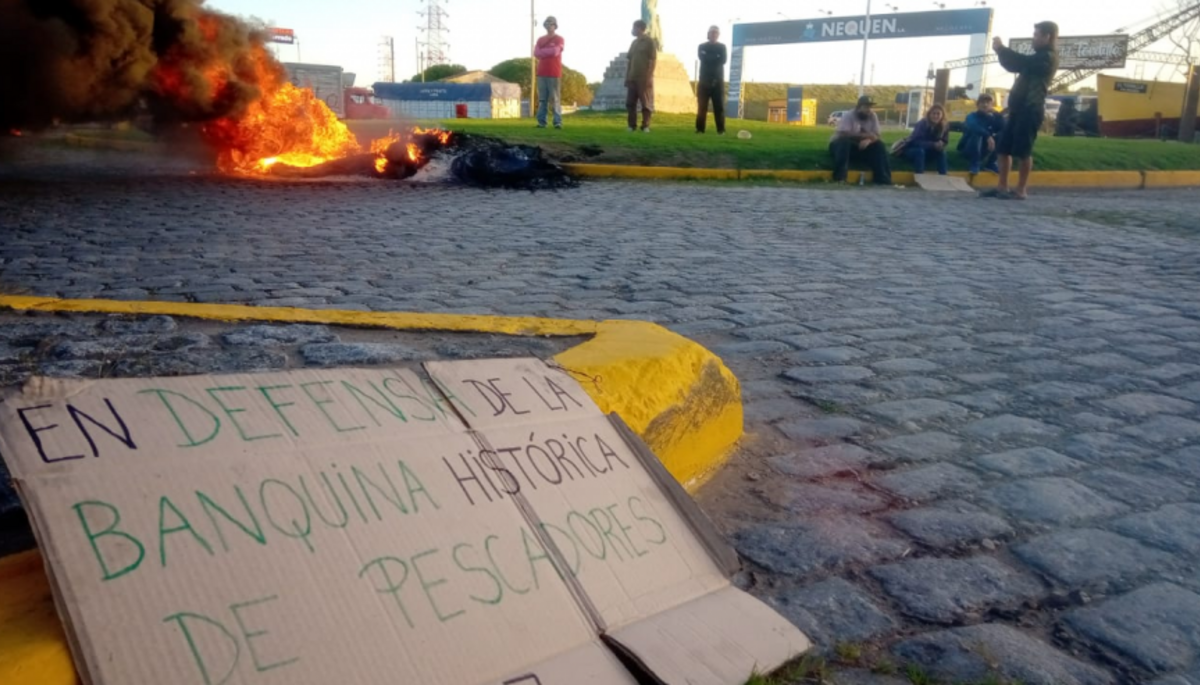 NEQUEN
EN DEFENSA DE LA
BANQUINA HISTÓRICA
DE PESCADORES